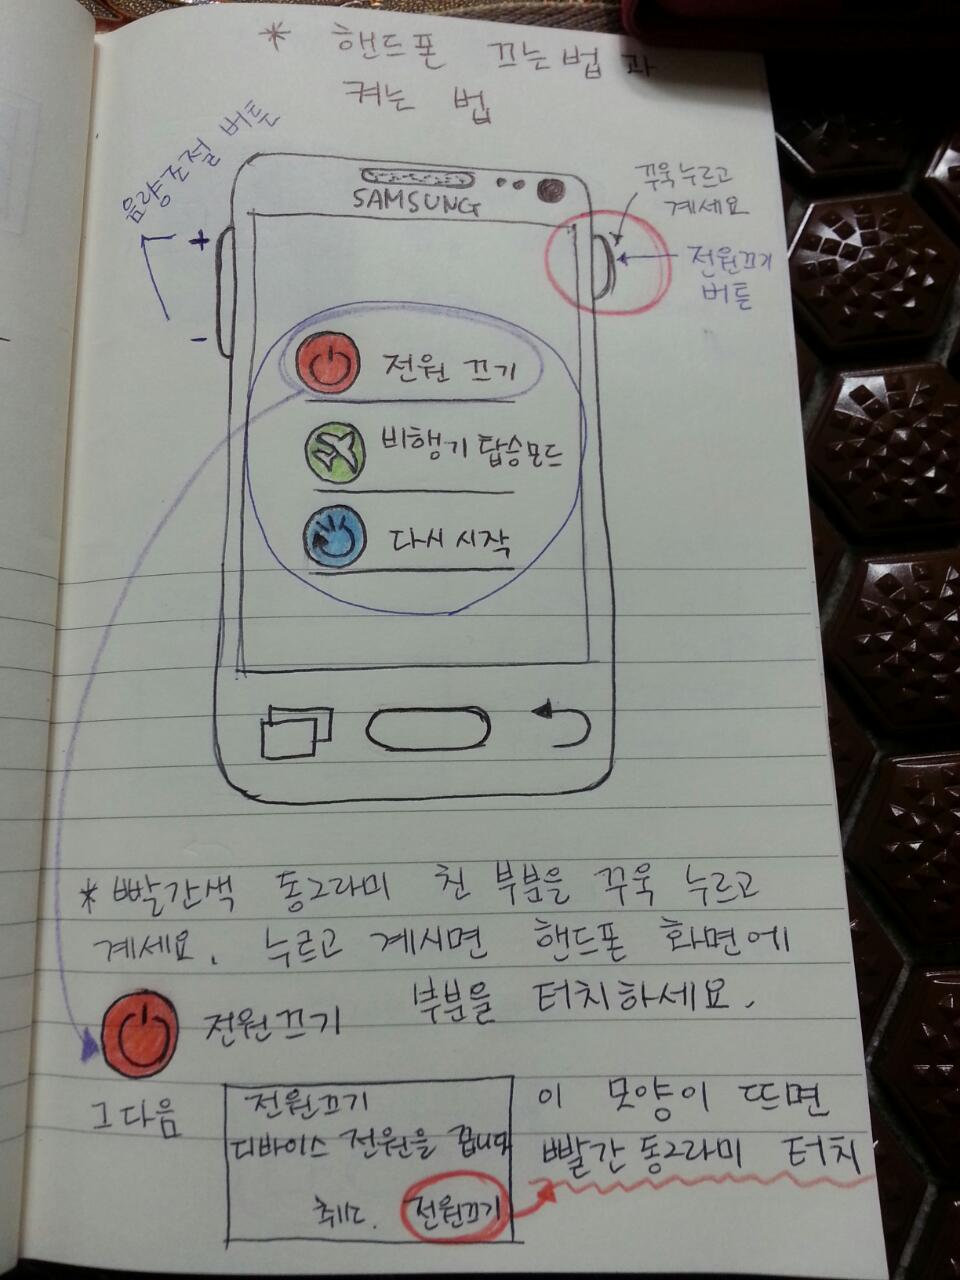 * 핸드폰 끄는법과
켜는 법
음량조절 버튼
+
-
SAMSUNG
꾸욱누르고
계세요
전원끄기
버튼
전원 끄기
비행기 탑승모드
다시 시작
* 빨간색 동그라미 친 부분을 꾸욱 누르고
계세요. 누르고 계시면 핸드폰 화면에
전원끄기 부분을 터치하세요.
그다음
전원끄기
디바이스 전원을 끕니다
취소. 전원끄기
이 모양이 뜨면
빨간동그라미 터치